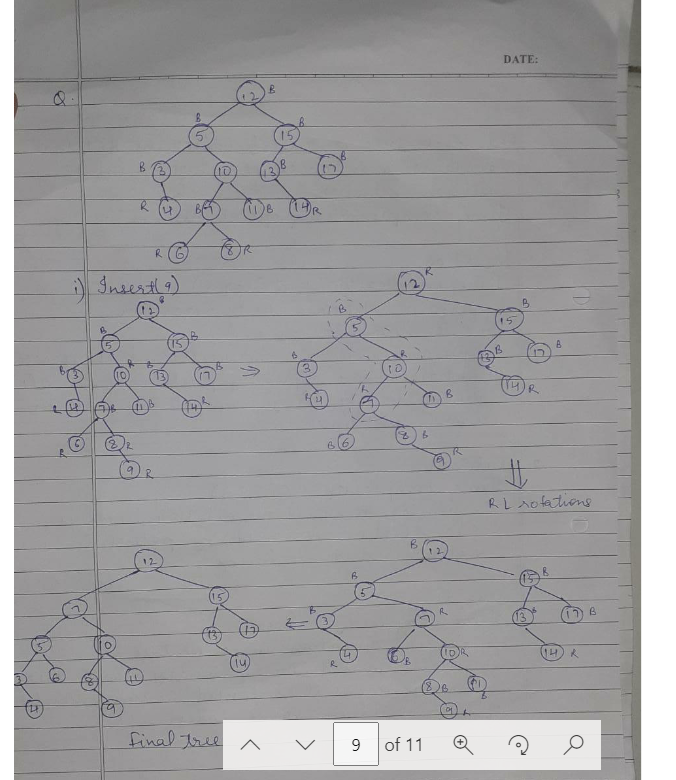 DATE:
Q.
12 B
B 5 15 B
B 3 10 13 B 17 B
R 4 B 7 11 B 14 R
R 6 8 R
i) Insert(9)
12 B
B 5 15 B
B 3 10 R B 13 17 B
R 4 7 B 11 B 14 R
R 6 8 R
9 R
⇒
12 R
B 5 15 B
B 3 R 10 13 B 17 B
R 4 R 7 11 B 14 R
B 6 8 B
9 R
⇓
RL rotations
B 12
B 5 15 B
B 3 7 R 13 B 17 B
R 4 6 B 10 R 14 R
8 B 11 B
9
⇐
12
7 15
5 10 13 17
3 6 8 11 14
4 9
Final Tree
9 of 11